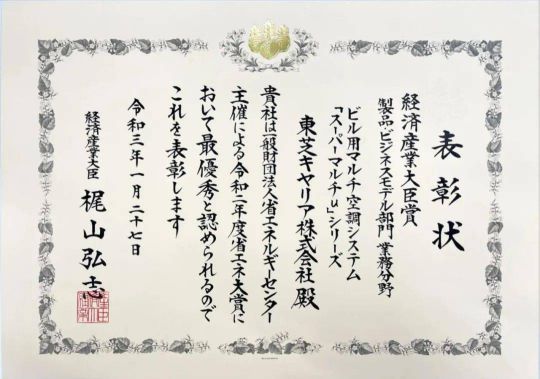 表彰状
経済産業大臣賞
製品・ビジネスモデル部門 業務分野
ビル用マルチ空調システム
「スーパーマルチu」シリーズ
東芝キヤリア株式会社 殿
貴社は一般財団法人省エネルギーセンター
主催による令和二年度省エネ大賞に
おいて最優秀と認められるので
これを表彰します
令和三年一月二十七日
経済産業大臣 梶山弘志